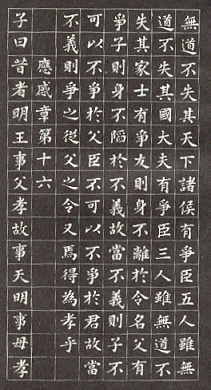 道不失其天下諸侯有爭臣五人雖無
道不失其國大夫有爭臣三人雖無道不
失其家士有爭友則身不離於令名父有
爭子則身不陷於不義故當不義則子不
可以不爭於父臣不可以不爭於君故當
不義則爭之從父之令又焉得為孝乎
應感章第十六
子曰昔者明王事父孝故事天明事母孝